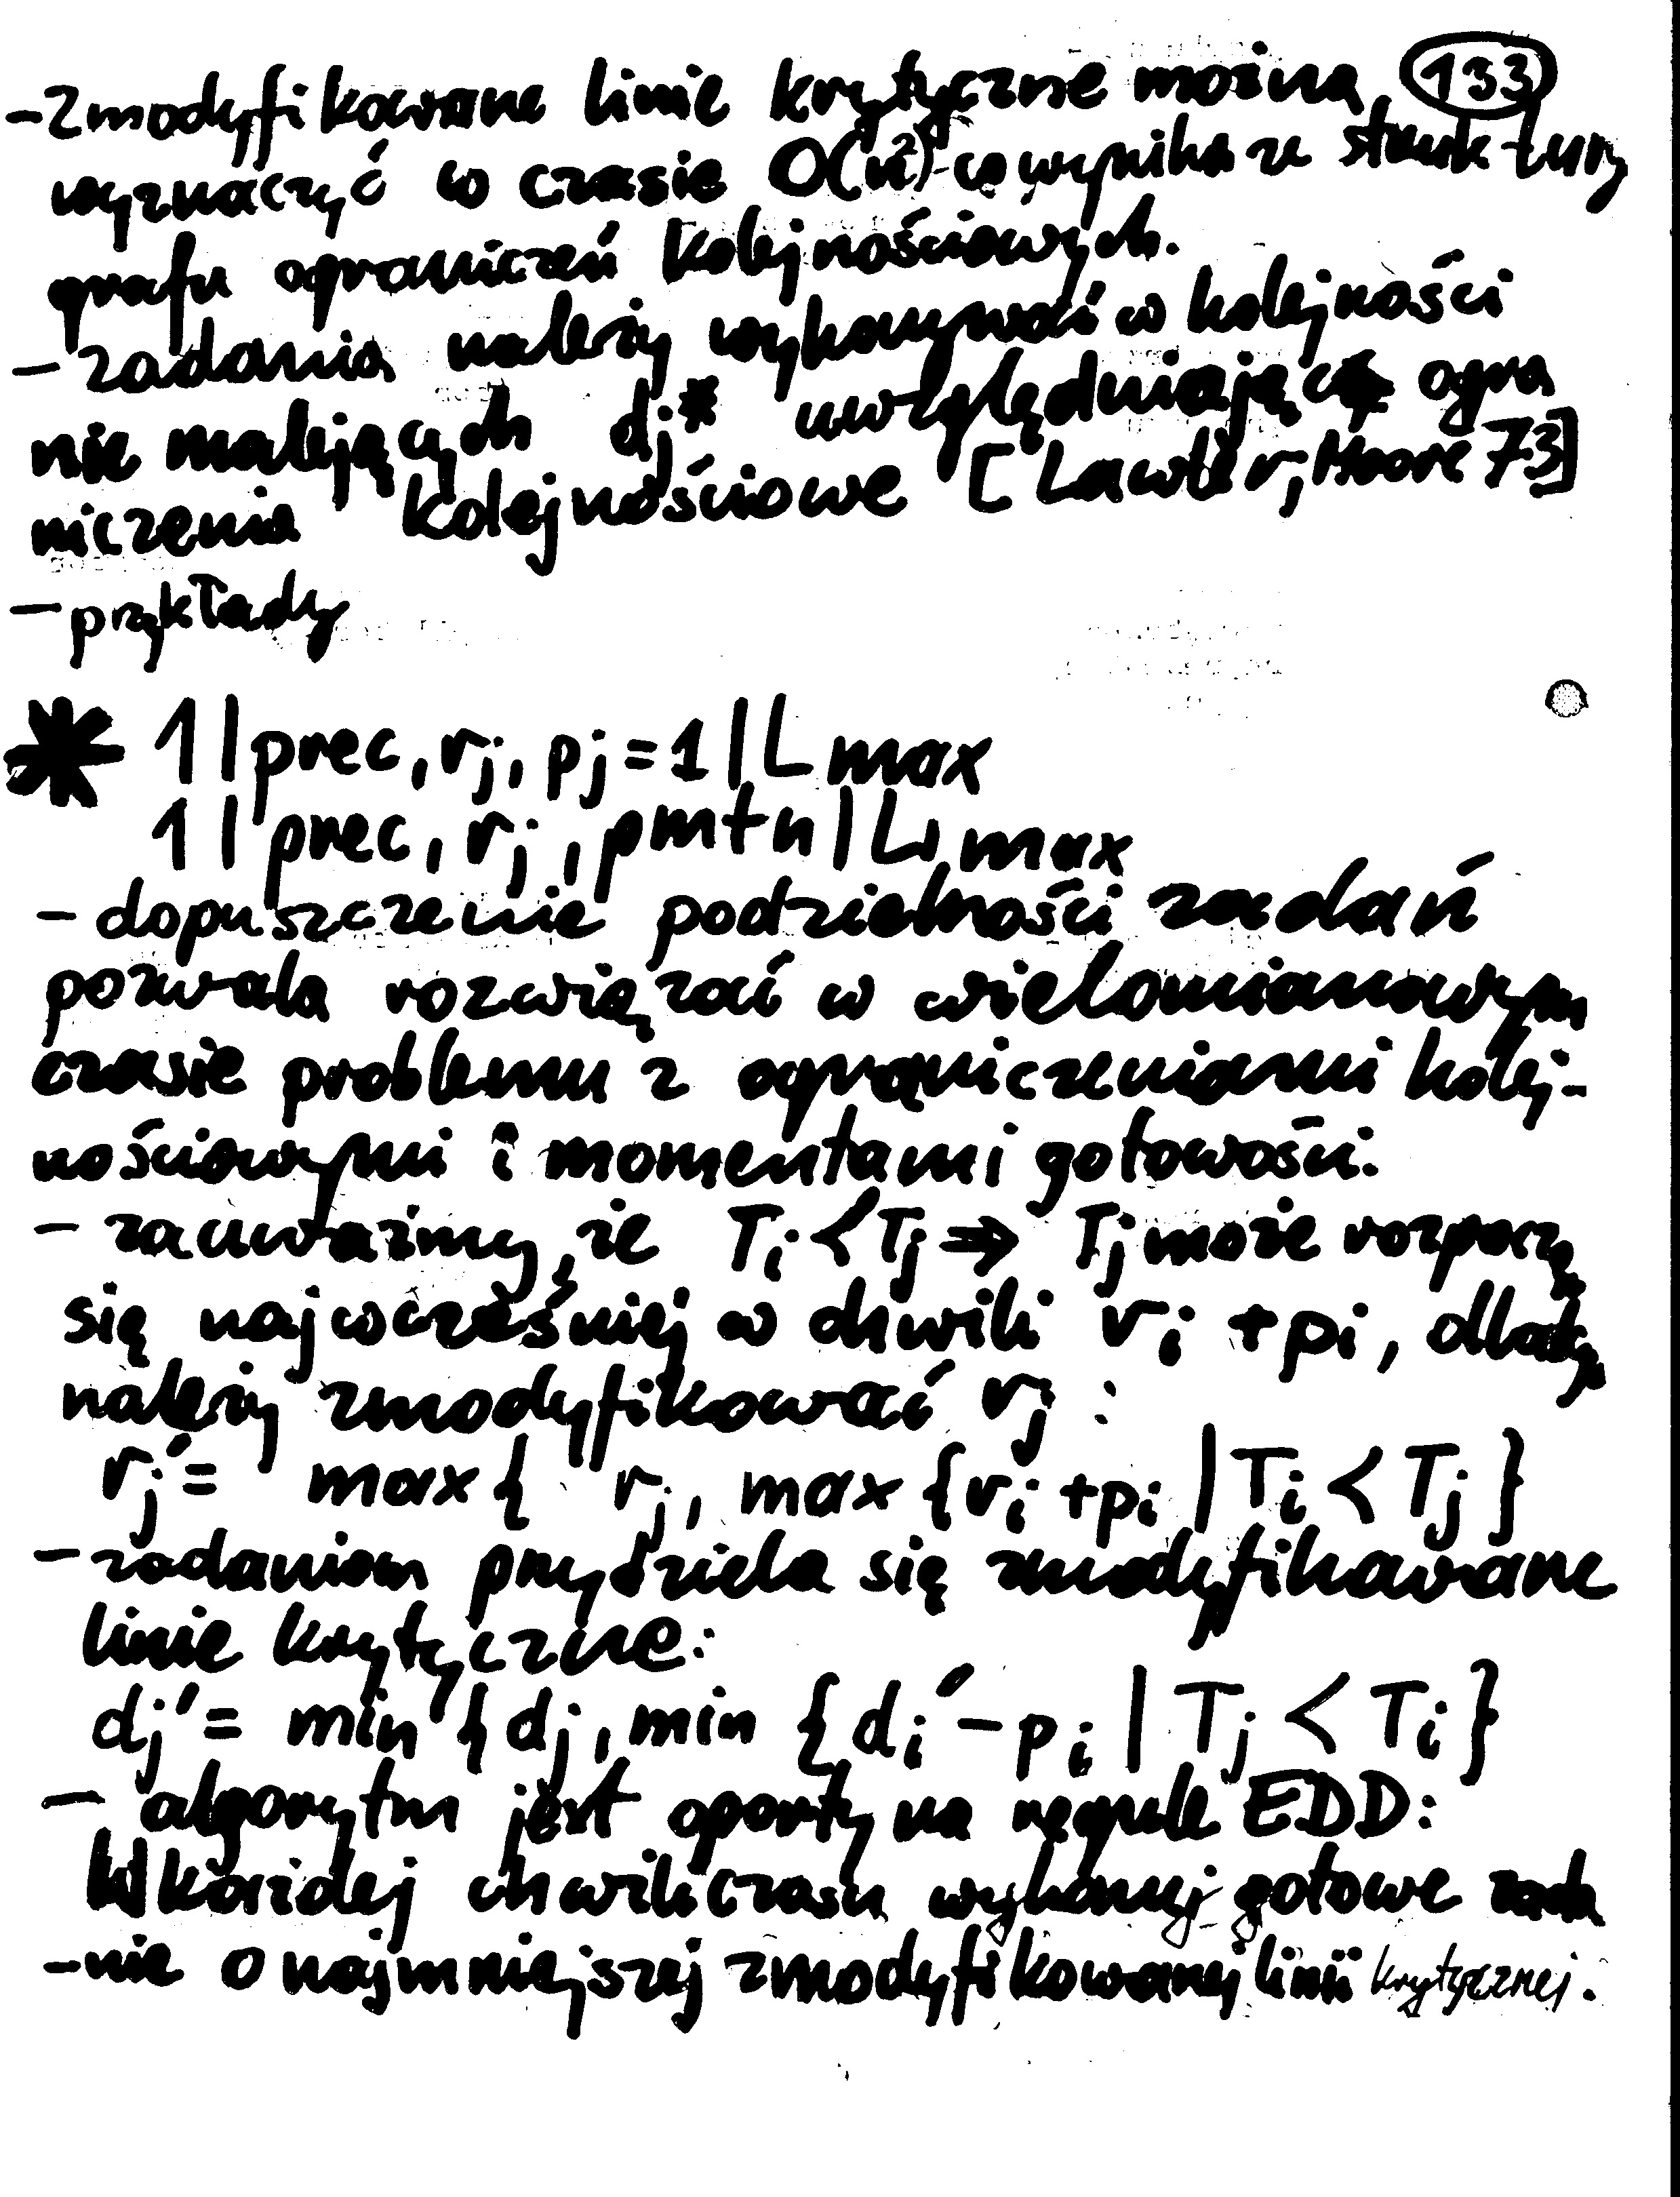 133
- Zmodyfikowane linie krytyczne można
wyznaczyć w czasie O(n²) - co wynika ze struktury
grafu ograniczeń kolejnościowych.
- zadania należy wykonywać w kolejności
nie malejących dj* uwzględniając ogra
niczenia kolejnościowe [Lawler, Moore 73]
- przykłady
* 1|prec, rj, pj=1|Lmax
1|prec, rj, pmtn|Lmax
- dopuszczenie podzielności zadań
pozwala rozwiązać w wielomianowym
czasie problemu z ograniczeniami kolej-
nościowymi i momentami gotowości.
- zauważmy, że Ti < Tj ⇒ Tj może rozpocząć
się najwcześniej w chwili ri + pi, dlatego
należy zmodyfikować rj :
rj' = max{ rj, max{ri + pi | Ti < Tj }
- zadaniom przydziela się zmodyfikowane
linie krytyczne:
dj' = min{dj, min {di' - pi | Tj < Ti}
- algorytm jest oparty na regule EDD:
W każdej chwili czasu wykonuj gotowe zada
-nie o najmniejszej zmodyfikowanej linii krytycznej.